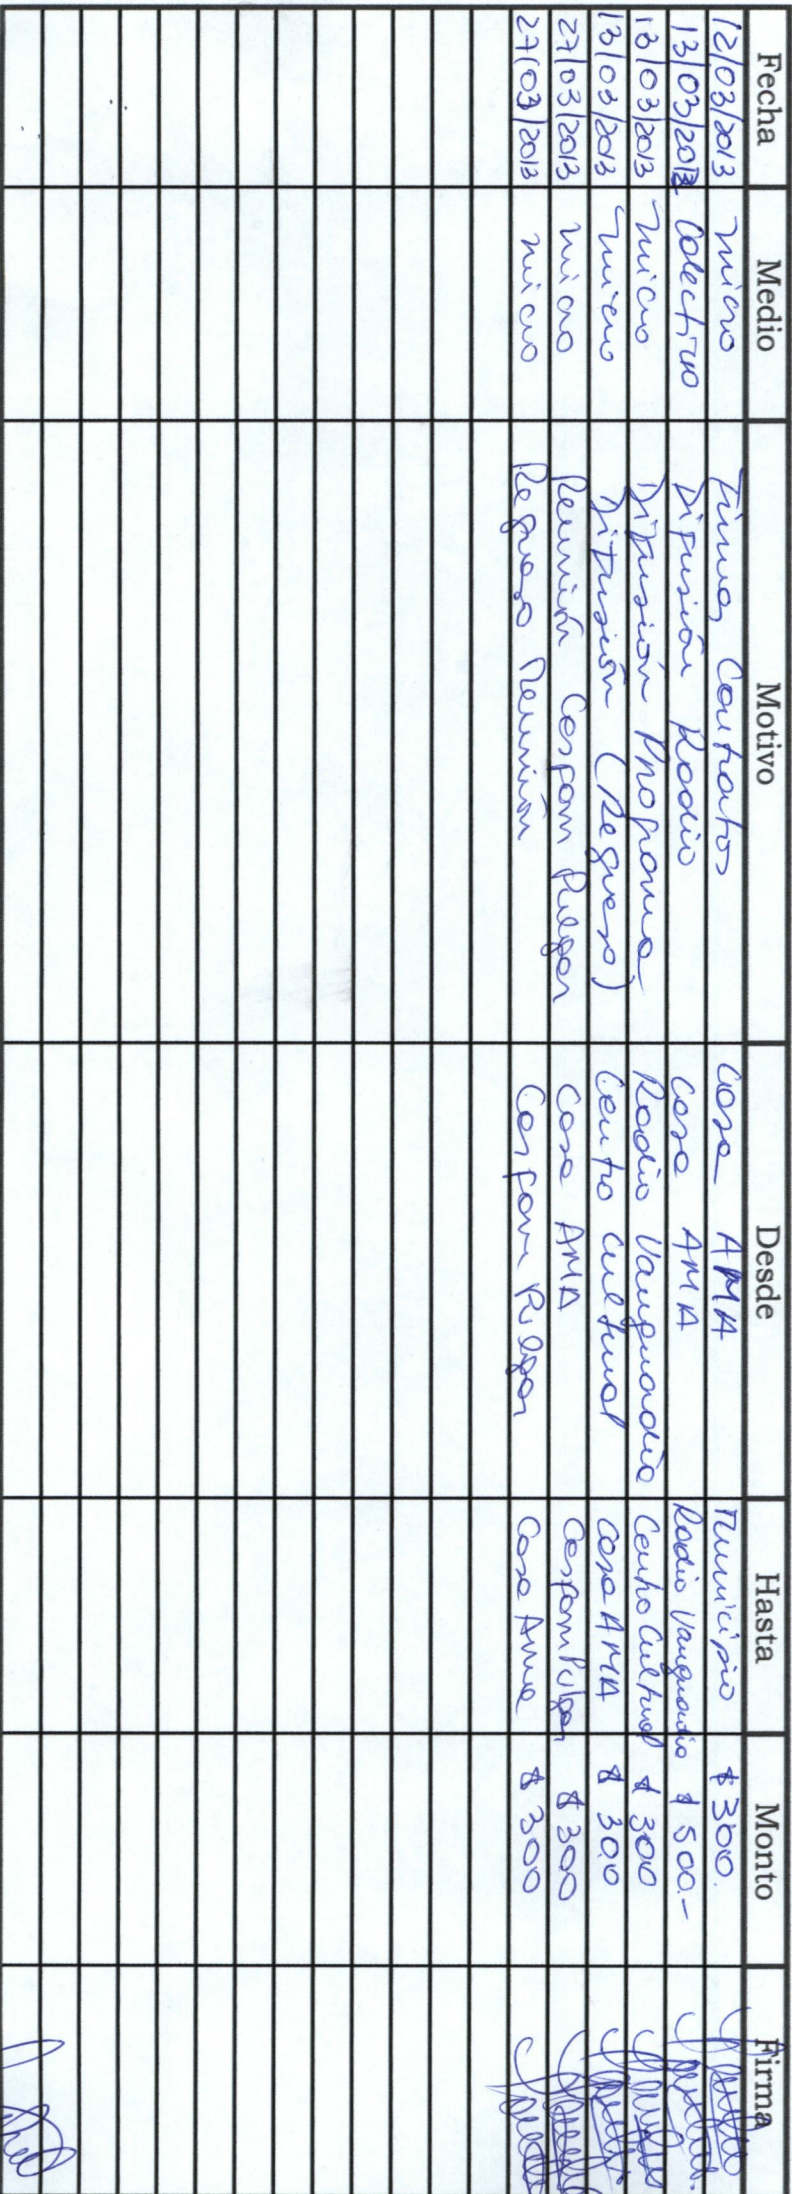 Fecha Medio Motivo Desde Hasta Monto Firma
12/03/2013 micro Firmas Contratos Casa AMA Municipio $300.
13/03/2013 Colectivo Difusión Radio Casa AMA Radio Vanguardia $500.-
13/03/2013 micro Difusión Programa Radio Vanguardia Centro Cultural $300
13/03/2013 micro Difusión (Regreso) Centro Cultural Casa AMA $300
27/03/2013 micro Reunión Casa AMA $300
27/03/2013 micro Regreso Reunión Casa Ama $300